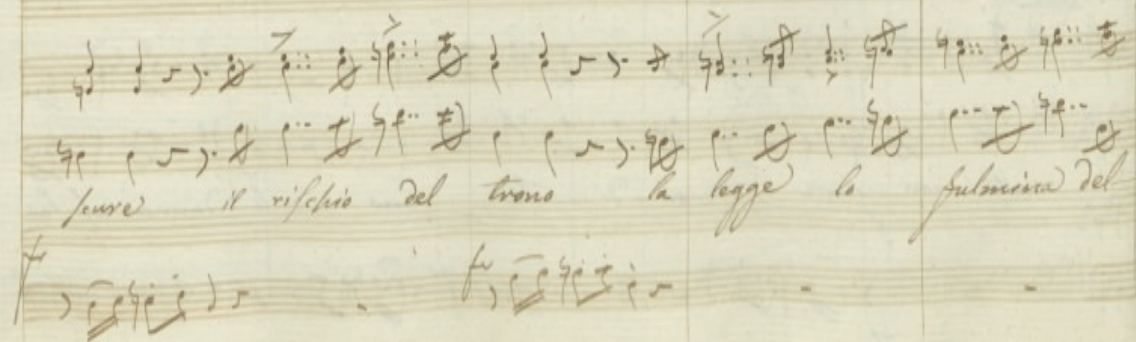 scure il rischio del trono la legge lo fulmina del
for
for